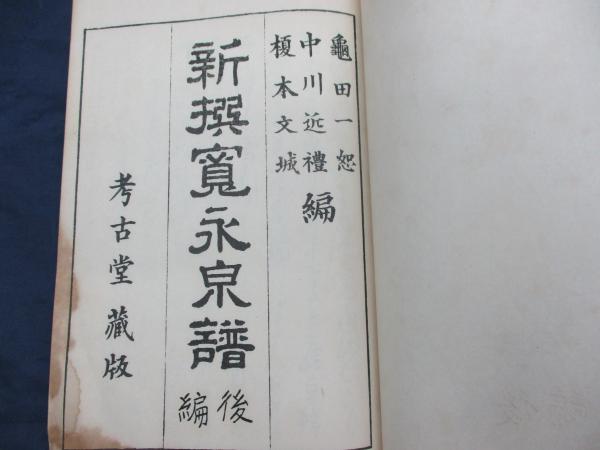 龜田一恕
中川近禮編
榎本文城
新撰寬永泉譜
後編
考古堂藏版